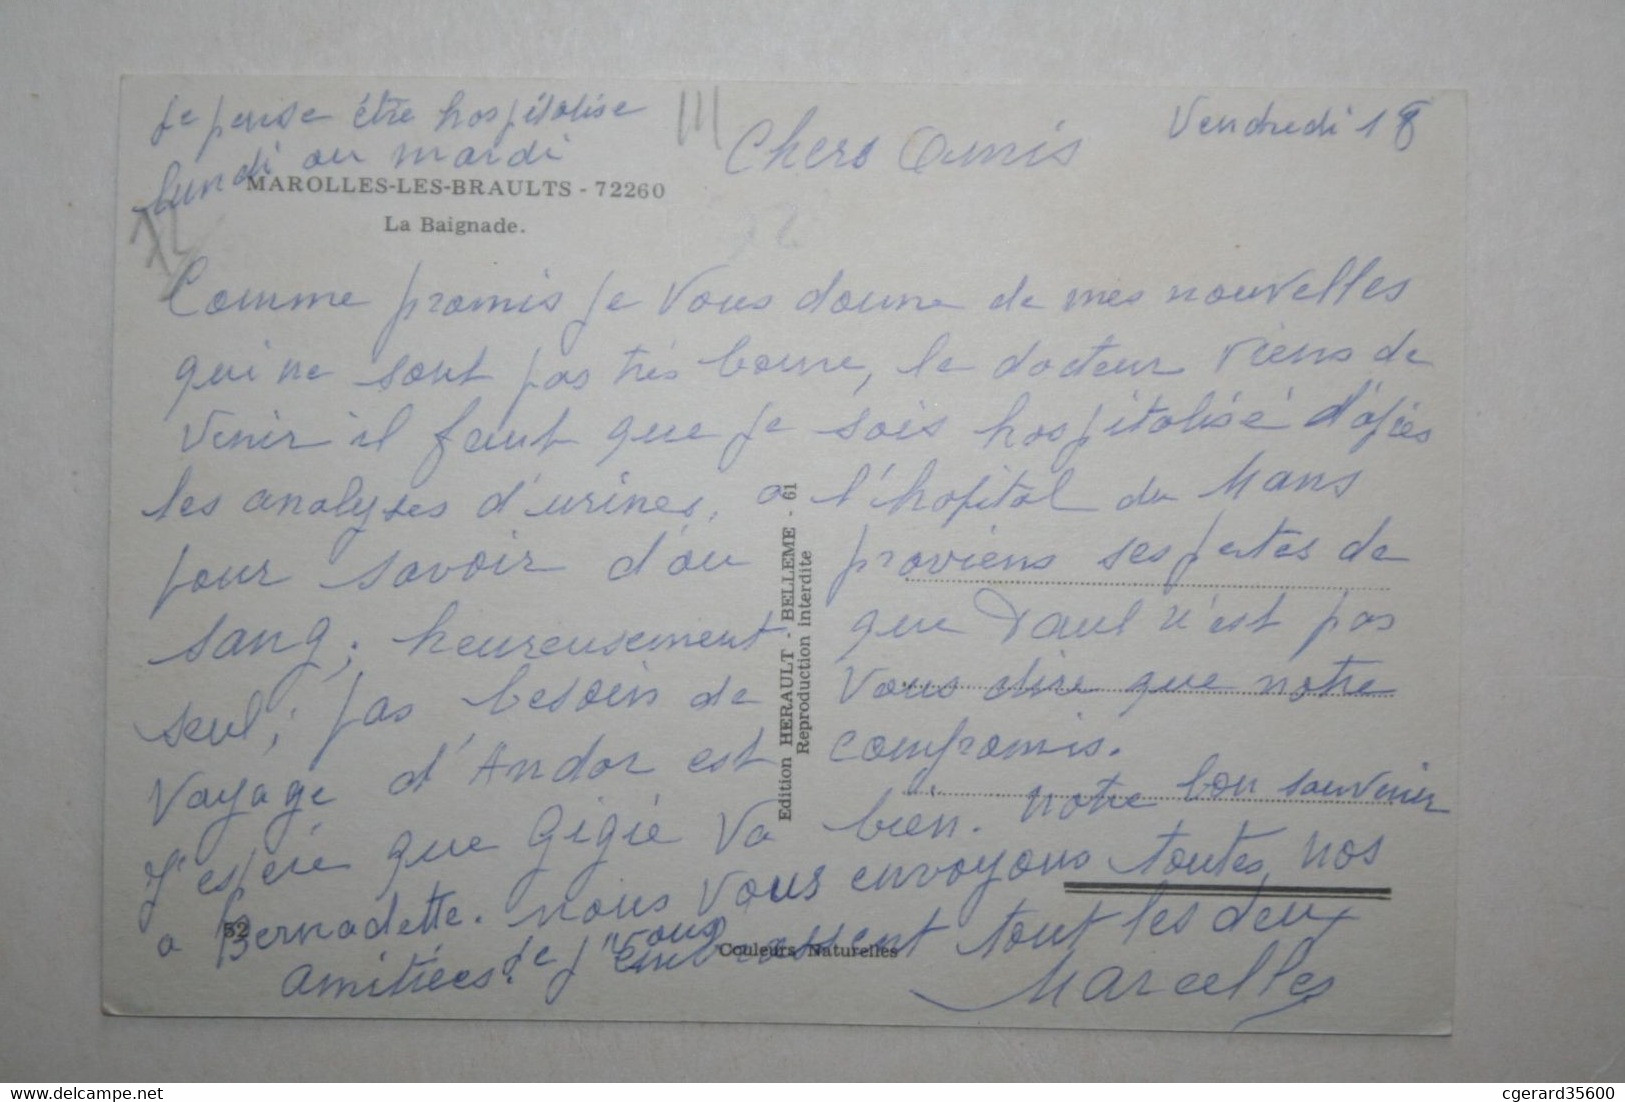 Je pense être hospitalise
lundi ou mardi
MAROLLES-LES-BRAULTS - 72260
La Baignade.
72
Chers Amis
Vendredi 18
Comme promis je Vous donne de mes nouvelles
qui ne sont pas très bonne, le docteur viens de
Venir il faut que je sois hospitalisé d'après
les analyses d'urines, a l'hopital du Mans
pour savoir d'ou proviens ses pertes de
sang; heureusement que Paul n'est pas
seul; pas besoin de Vous dire que notre
Voyage d'Andor est compromis.
J'espère que Gigie Va bien. notre bon souvenir
a Bernadette. nous Vous envoyons toutes nos
amitiées. je Vous embrassent tout les deux
Marcelles
Edition HERAULT - BELLEME - 61
Reproduction interdite
52
Couleurs Naturelles
cgerard35600